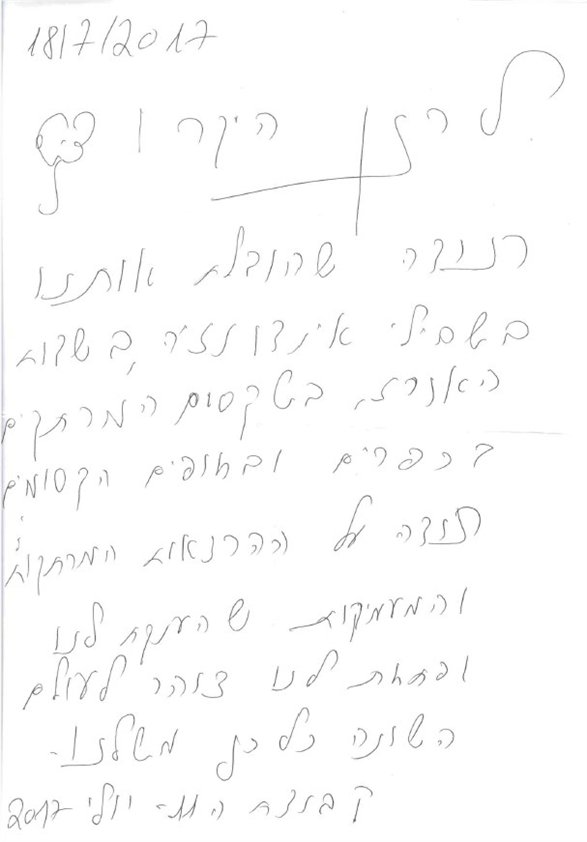 18/7/2017
לרזן היקר וציץ
תודה שהובלת אותנו
בשבילי אינדונזיה, בשדות
האורז, בטקסים המרתקים
בכפרים ובחופים הקסומים
תודה על ההרצאות המרתקות
והמעמיקות שהענקת לנו
ופתחת לנו צוהר לעולם
השונה כל כך משלנו-
קבוצת ה ווי- יולי 2017